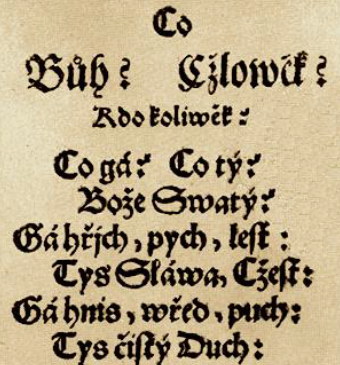 Co
Bůh? Cžlowěk?
Kdo koliwěk:
Co gá? Co tý?
Bože Swatý?
Gá hřjch, pych, lest:
Tys Sláwa, Cžest:
Gá hnis, wřed, puch:
Tys čistý Duch: